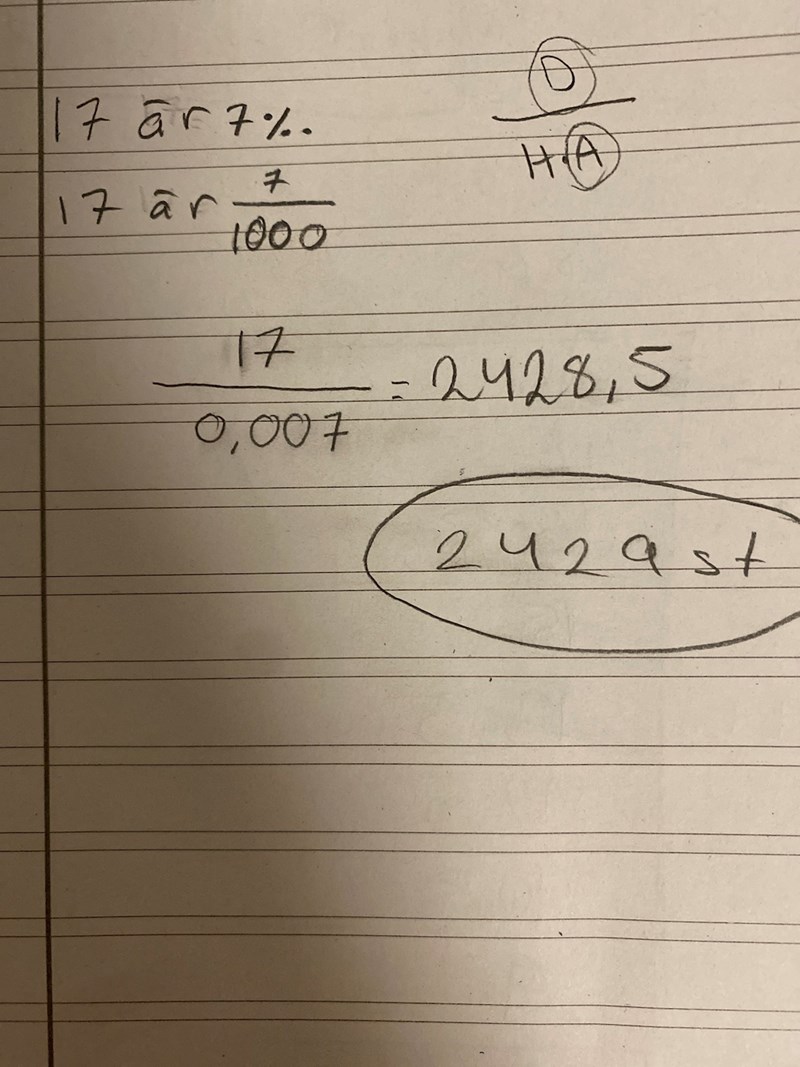 17 är 7‰
D
H·A
17 är 7/1000
17/0,007 = 2428,5
2429 st